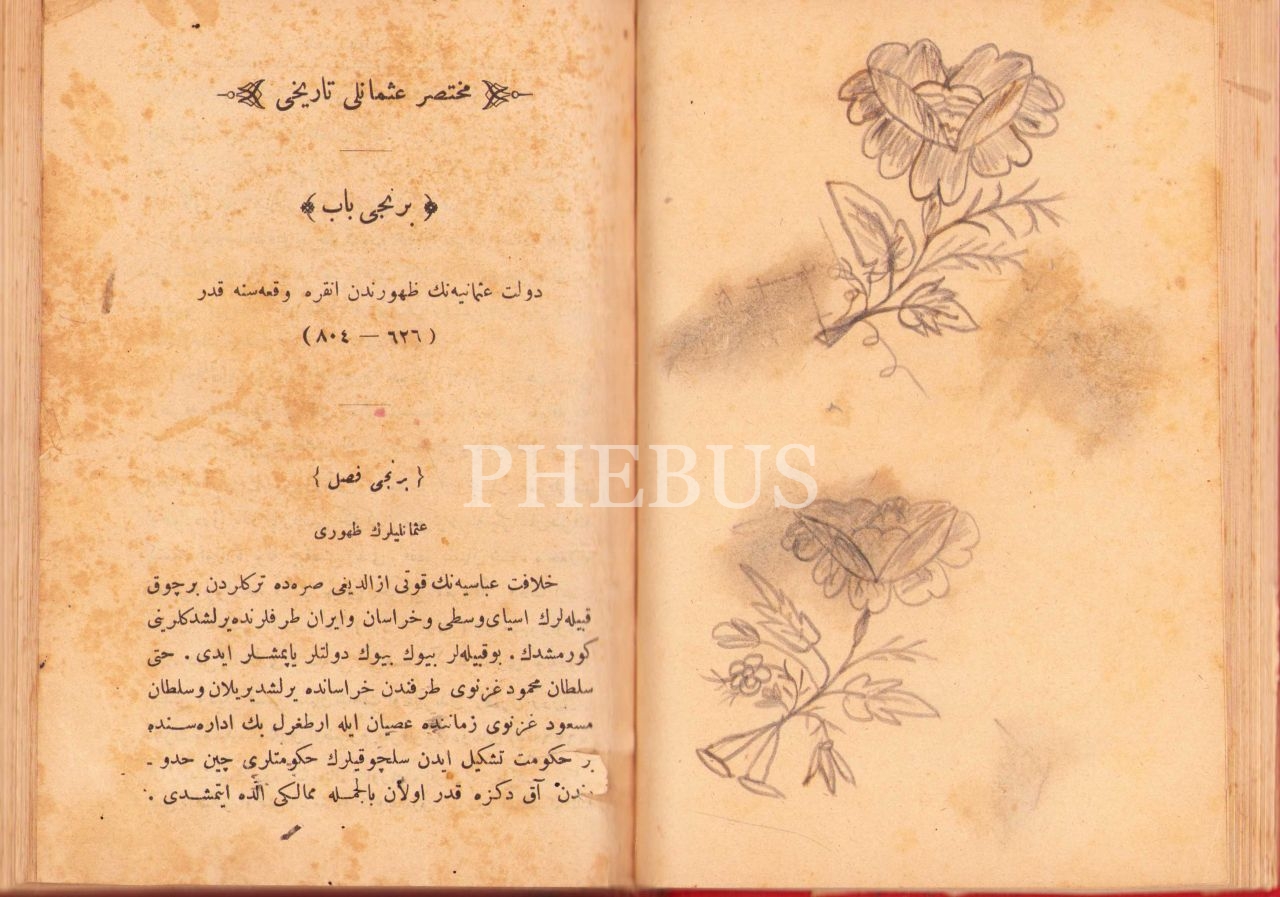 مختصر عثمانلی تاریخی
برنجی باب
دولت عثمانیه‌نك ظهورندن انقره وقعه‌سنه قدر
(٦٢٦ — ٨٠٤)
{ برنجی فصل }
عثمانلیلرك ظهوری
خلافت عباسیه‌نك قوتی ازالدیغی صره‌ده تركلردن برچوق
قبیله‌لرك اسیای وسطی وخراسان وایران طرفلرنده یرلشدكلرینی
كورمشدك. بوقبیله‌لر بیوك بیوك دولتلر یاپمشلر ایدی. حتی
سلطان محمود غزنوی طرفندن خراسانده یرلشدیریلان وسلطان
مسعود غزنوی زماننده عصیان ایله ارطغرل بك اداره‌سنده
بر حكومت تشكیل ایدن سلچوقیلرك حكومتلری چین حدو-
ندن آق دكزه قدر اولان بالجمله ممالكی الده ایتمشدی.
PHEBUS